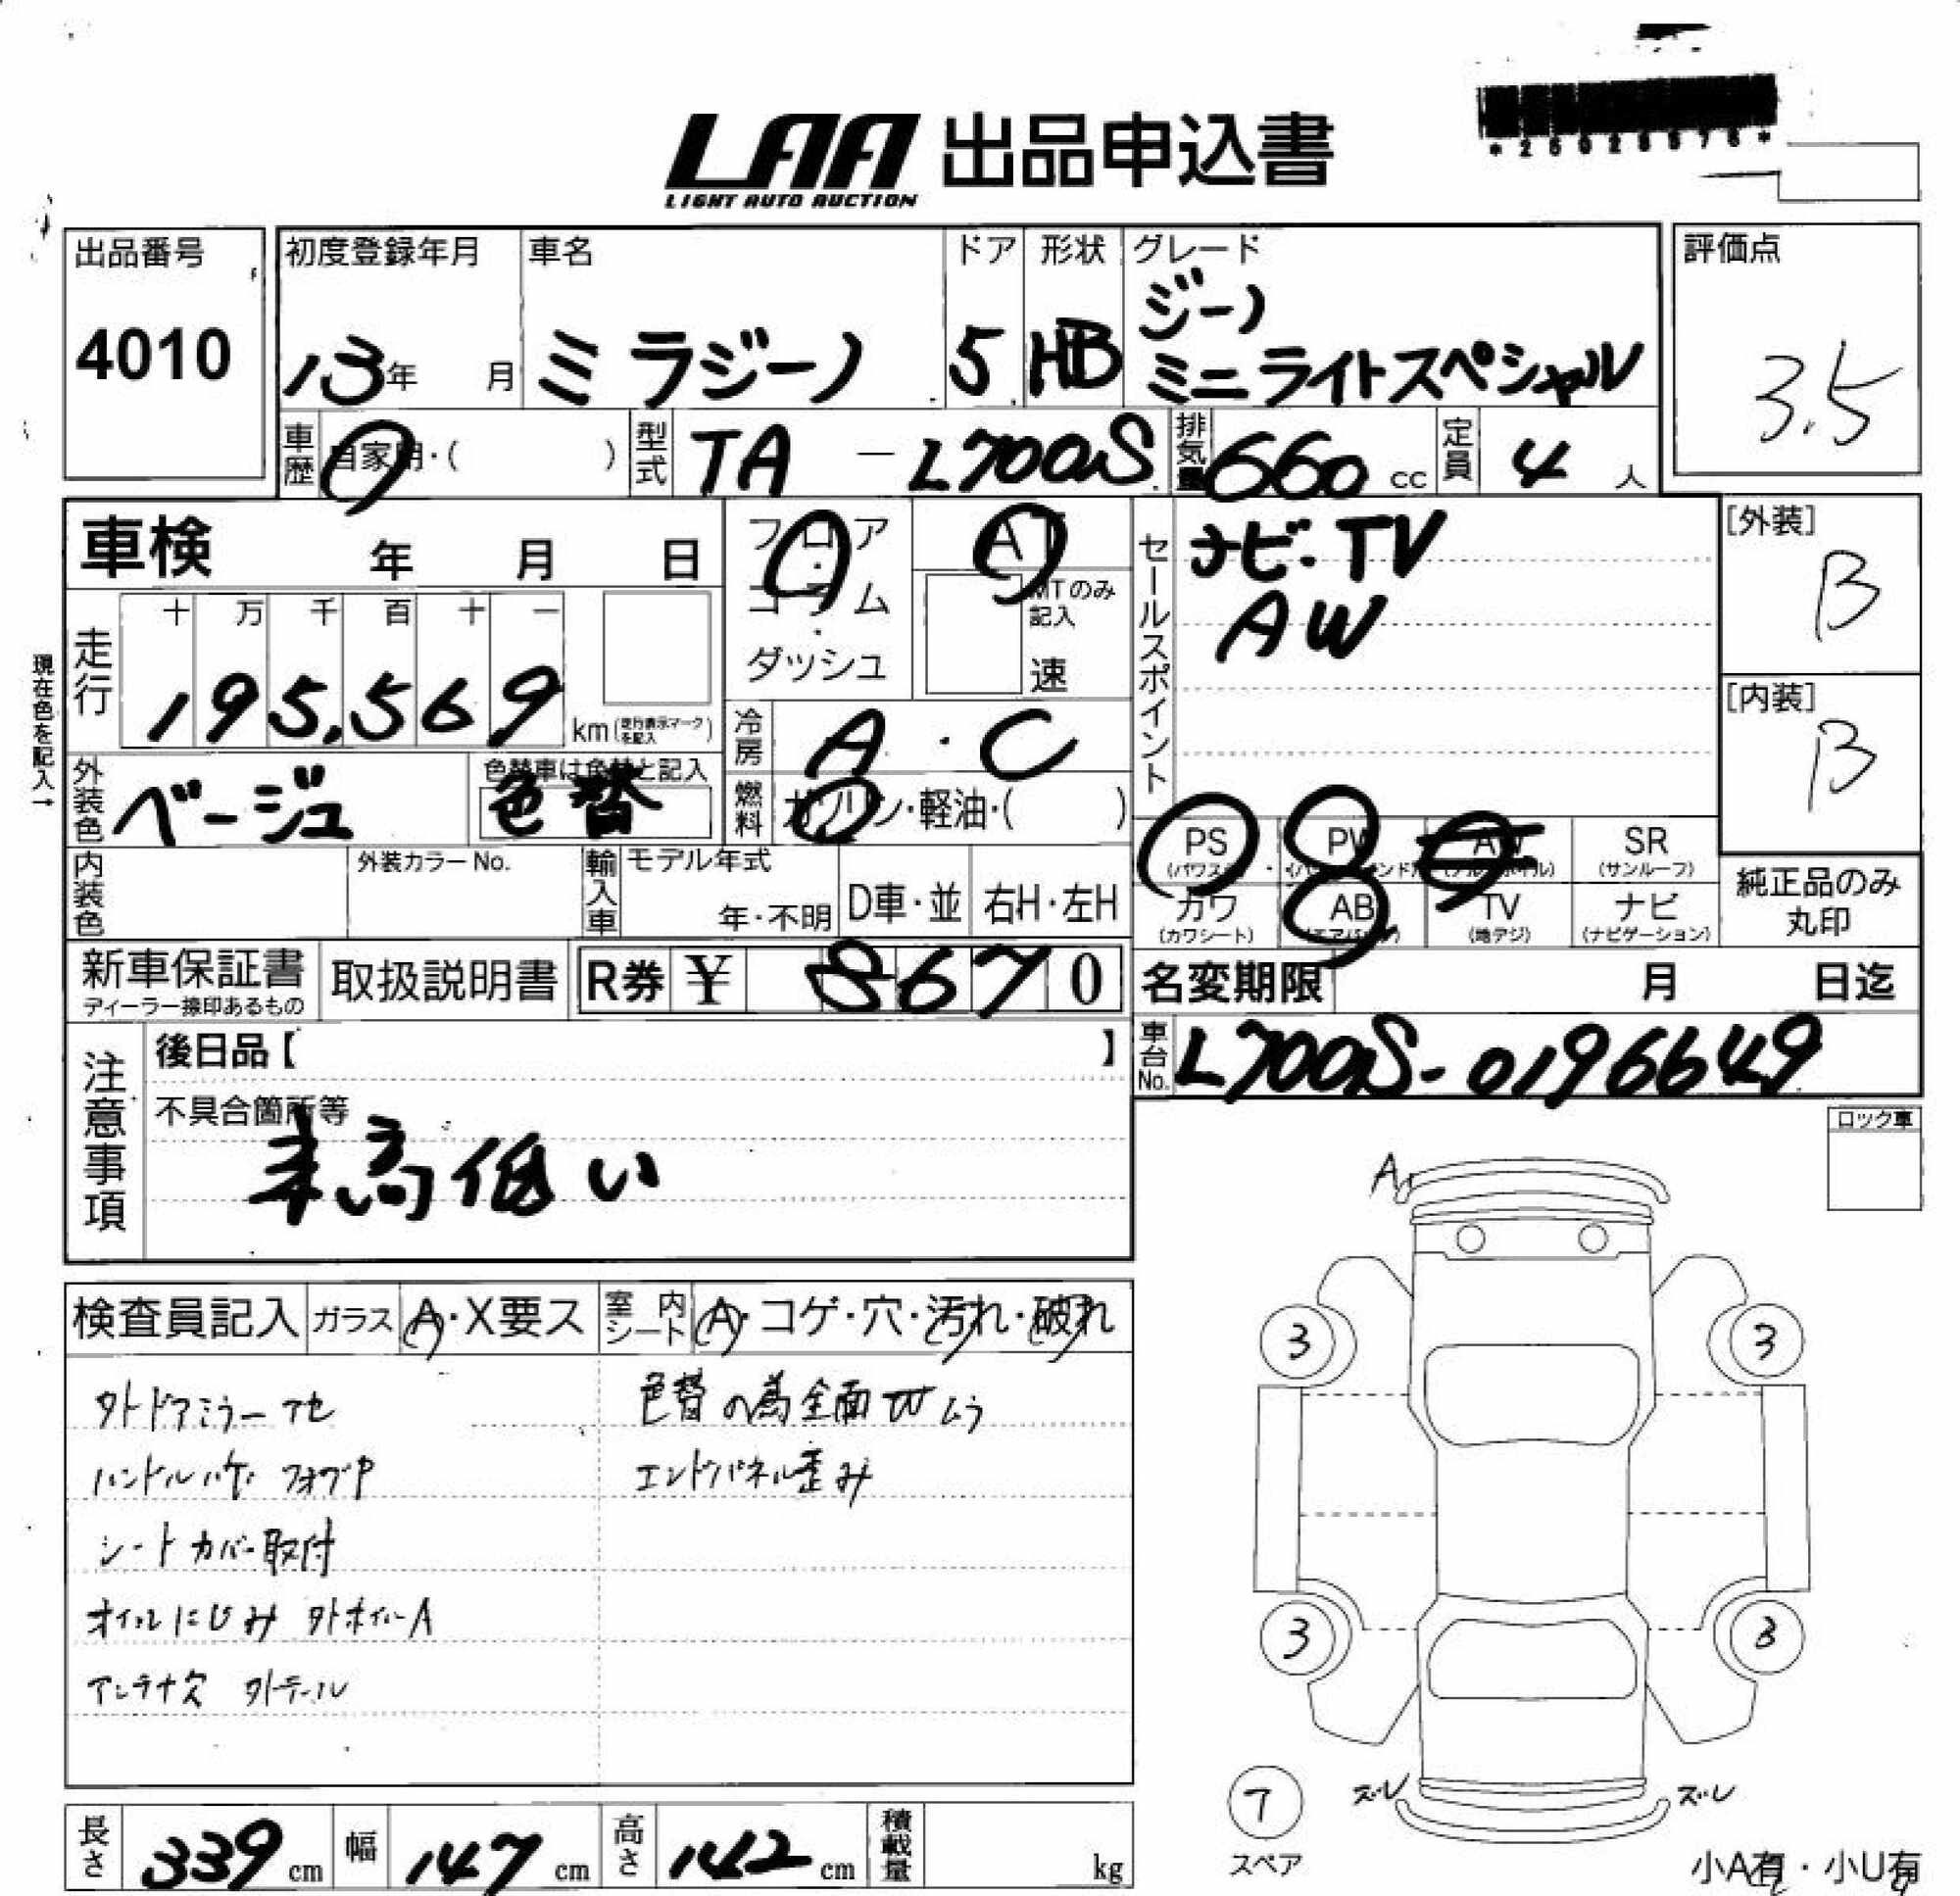 LAA 出品申込書
LIGHT AUTO AUCTION
出品番号
4010
初度登録年月
13年 月
車名
ミラジーノ
ドア
5
形状
HB
グレード
ジーノ
ミニライトスペシャル
評価点
3.5
車歴 自家用・( )
型式 TA - L700S
排気量 660 cc
定員 4 人
車検 年 月 日
フロア・コラム・ダッシュ
AT
MTのみ記入
速
セールスポイント
ナビ・TV
AW
[外装]
B
[内装]
B
現在色を記入→
走行
十 万 千 百 十 一
195,569
km(走行表示マークを記入)
冷房 A・C
外装色 ベージュ
色替車は色替と記入
色替
燃料 ガソリン・軽油・( )
PS
PW
AW
SR
(サンルーフ)
カワ
(カワシート)
AB
(エアバック)
TV
(地デジ)
ナビ
(ナビゲーション)
純正品のみ
丸印
内装色
外装カラーNo.
輸入車
モデル年式
年・不明
D車・並
右H・左H
新車保証書
ディーラー捺印あるもの
取扱説明書
R券 ¥ 8670
名変期限 月 日迄
車台No. L700S-0196649
注意事項
後日品【 】
不具合箇所等
車高低い
ロック車
検査員記入
ガラス A・X要ス
室内シート A・コゲ・穴・汚れ・破れ
外ドアミラーアセ
シートカバー取付
オイルにじみ 外ホイールA
アンテナ欠 外テール
色替の為全面
ムラ
エンドパネル歪み
A
3
3
3
3
7
スペア
ズレ
ズレ
小A有・小U有
長さ 339 cm
幅 147 cm
高さ 142 cm
積載量 kg